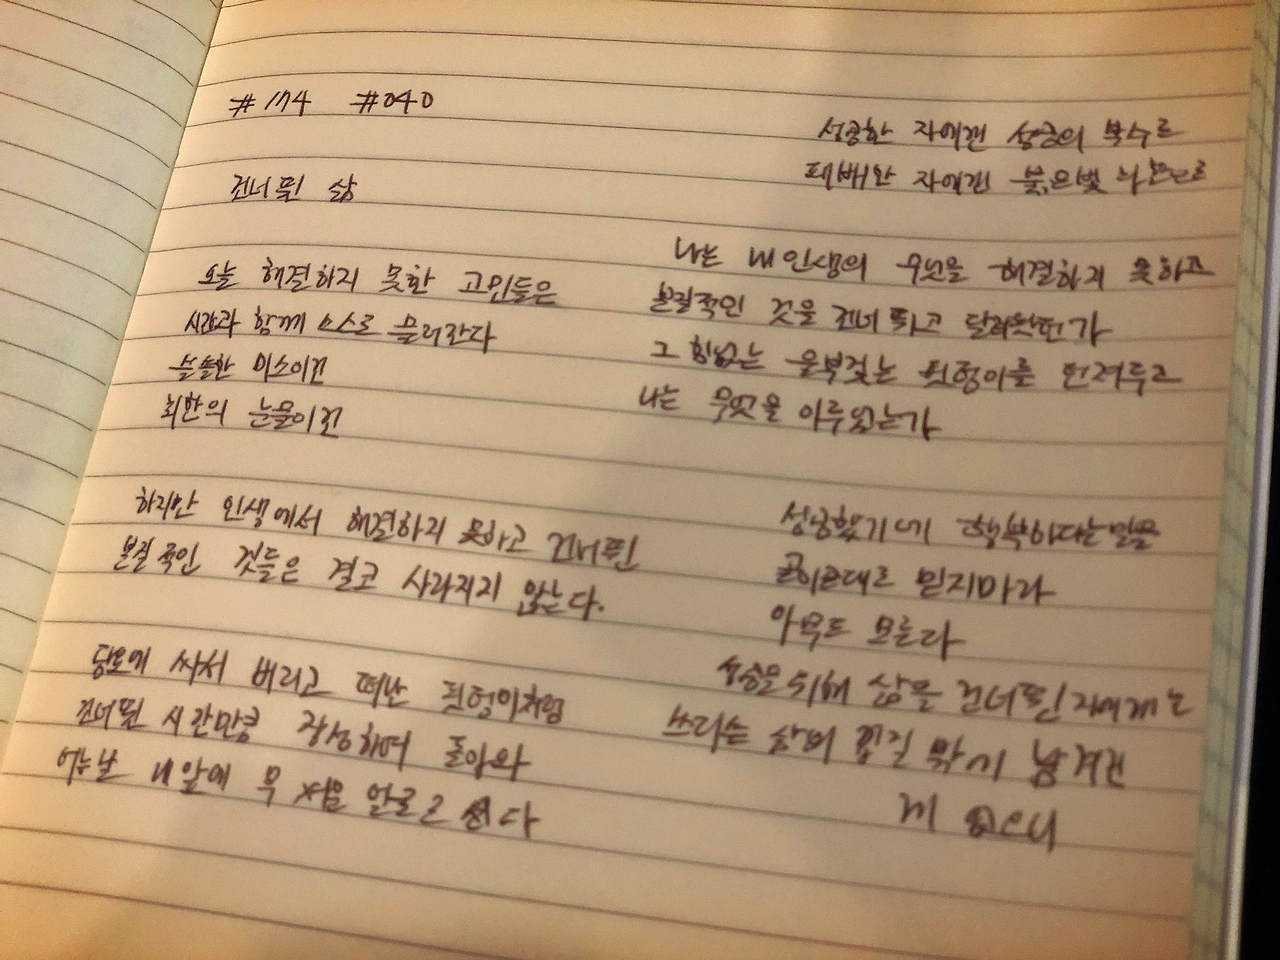 #174 #040
건너뛴 삶
오늘 해결하지 못한 고민들은
시간과 함께 스스로 물러간다
쓸쓸한 미소이건
회한의 눈물이건
하지만 인생에서 해결하지 못하고 건너뛴
본질적인 것들은 결코 사라지지 않는다.
담요에 싸서 버리고 떠난 핏덩이처럼
건너뛴 시간만큼 장성하여 돌아와
어느날 내 앞에 무서운 얼굴로 선다
성공한 자에겐 성공의 복수로
패배한 자에겐 붉은빛
나는 내 인생의 무엇을 해결하지 못하고
본질적인 것을 건너뛰고 달려왔던가
그 힘없는 울부짖는 핏덩이를 던져두고
나는 무엇을 이루었는가
성공했기에 행복하다는 말을
곧이곧대로 믿지마라
아무도 모른다
성공을 위해 삶을 건너뛴 자에게는
쓰디쓴 삶의 껍질 밖에 남겨진
게 없으니